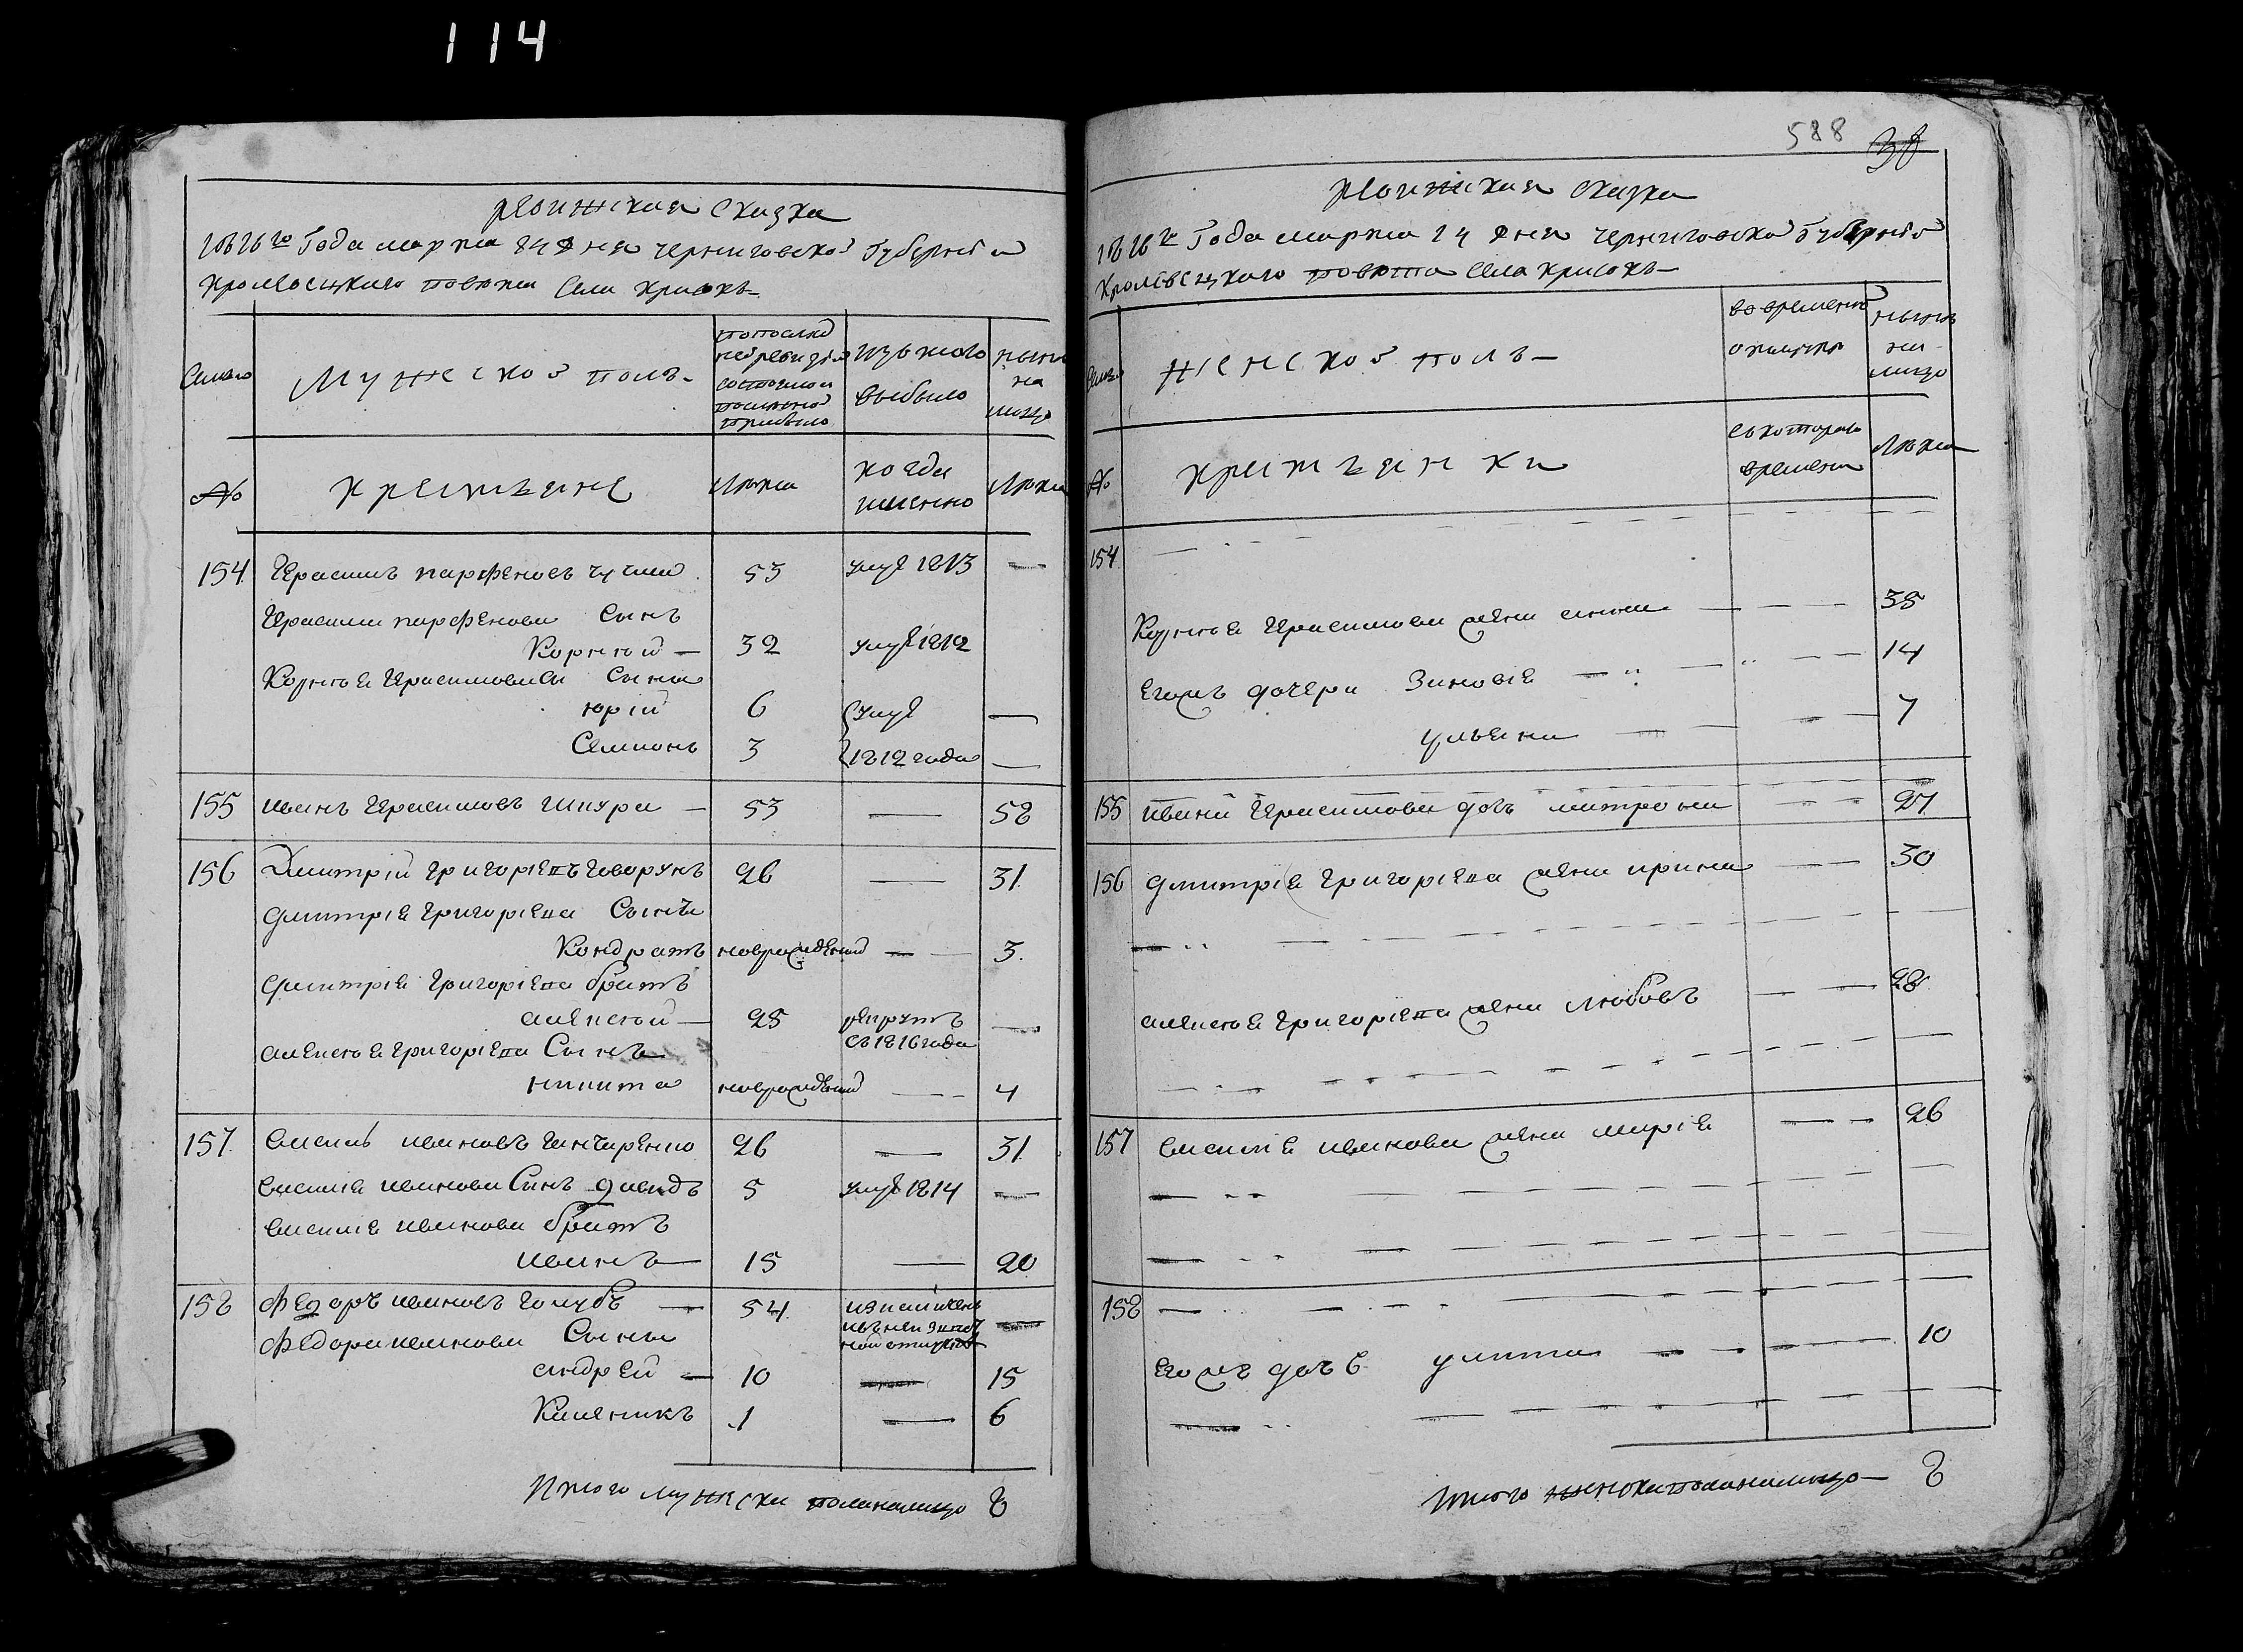 114
ревижская сказка
1816го Года марта 24 дня черниговской губернїи
кролевецкаго повета села крисокъ
Семьи
Мужескои полъ
по последней ревизїи состояло и после оной прибыло
изъ того выбыло
ныне на лицо
№
крестьяне
Лета
когда именно
Лета
154 Герасимъ парфеновъ 53 умре 1813 —
Герасима парфенова Сынъ
Корней — 32 умре 1812
Корнея Герасимова Сына
юрїй 6 умре —
Семионъ 3 1812 года —
155 иванъ Герасимовъ шкура — 53 — 58
156 Дмитрїй григорїевъ говорунъ 26 — 31
дмитрїя григорїева Сынъ
Кондратъ новорожденный — 3
дмитрїя григорїева братъ
алексей — 25 рекрутъ съ 1816 года —
алексея григорїева Сынъ
никита новорожденный — 4
157 василь ивановъ гончаренко 26 — 31
василїя иванова Сынъ давидъ 5 умре 1814 —
василїя иванова братъ
иванъ — 15 — 20
158 Федоръ ивановъ голубъ — 54 —
Федора иванова Сыны
андрей — 10 — 15
Каленикъ 1 — 6
Итого мужеска пола налицо 8
588 38
ревижская сказка
1816го Года марта 24 дня черниговской губернїи
кролевецкаго повета села крисокъ
Семьи
женскои полъ
во временной отлучке
ныне на лицо
№
крестьянки
съ котораго времени
Лета
154
Корнея Герасимова жена анна — 35
Егожъ дочери Зиновїя — 14
ульяна — 7
155 ивана Герасимова дочь матрона — 27
156 дмитрїя григорїева жена ирина — 30
алексея григорїева жена любовь — 28
157 василїя иванова жена марїя — 26
158 —
Егожъ дочь улита — 10
Итого женска пола налицо — 8